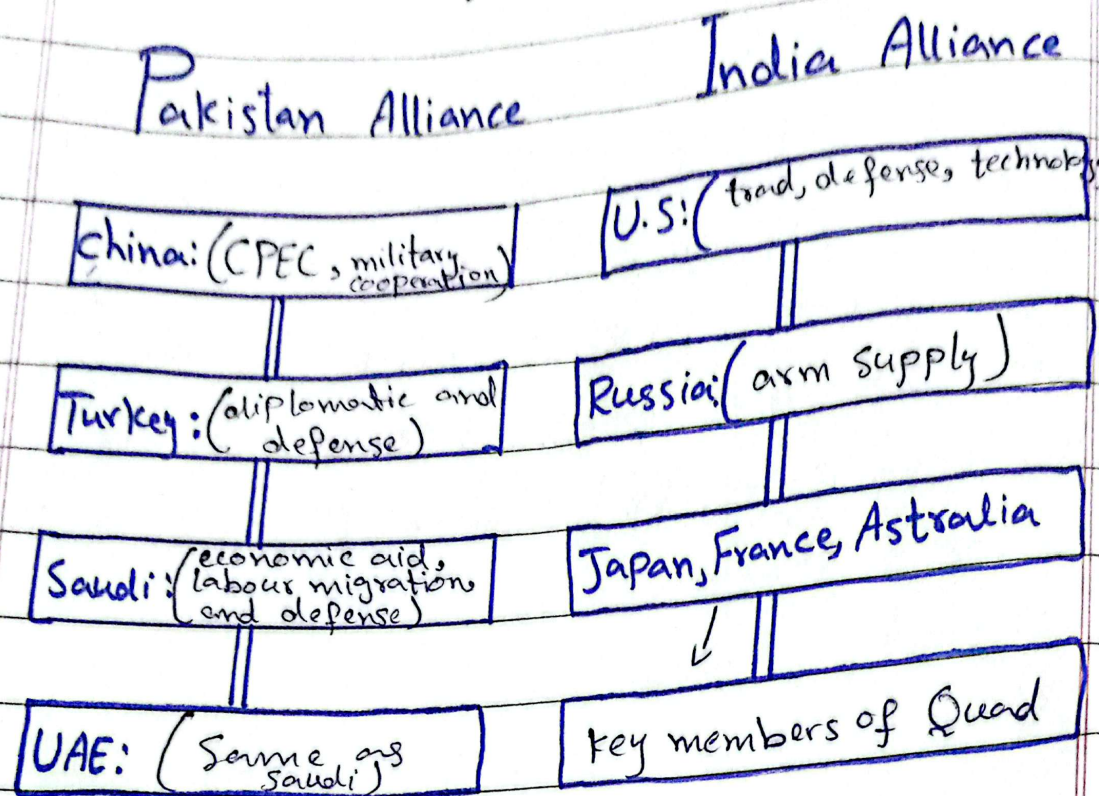 Pakistan Alliance
China: (CPEC, military
cooperation)
Turkey: (diplomatic and
defense)
Saudi: (economic aid,
labour migration
and defense)
UAE: (Same as
saudi)
India Alliance
U.S: (trad, defense, technology
Russia: (arm supply)
Japan, France, Astralia
key members of Quad